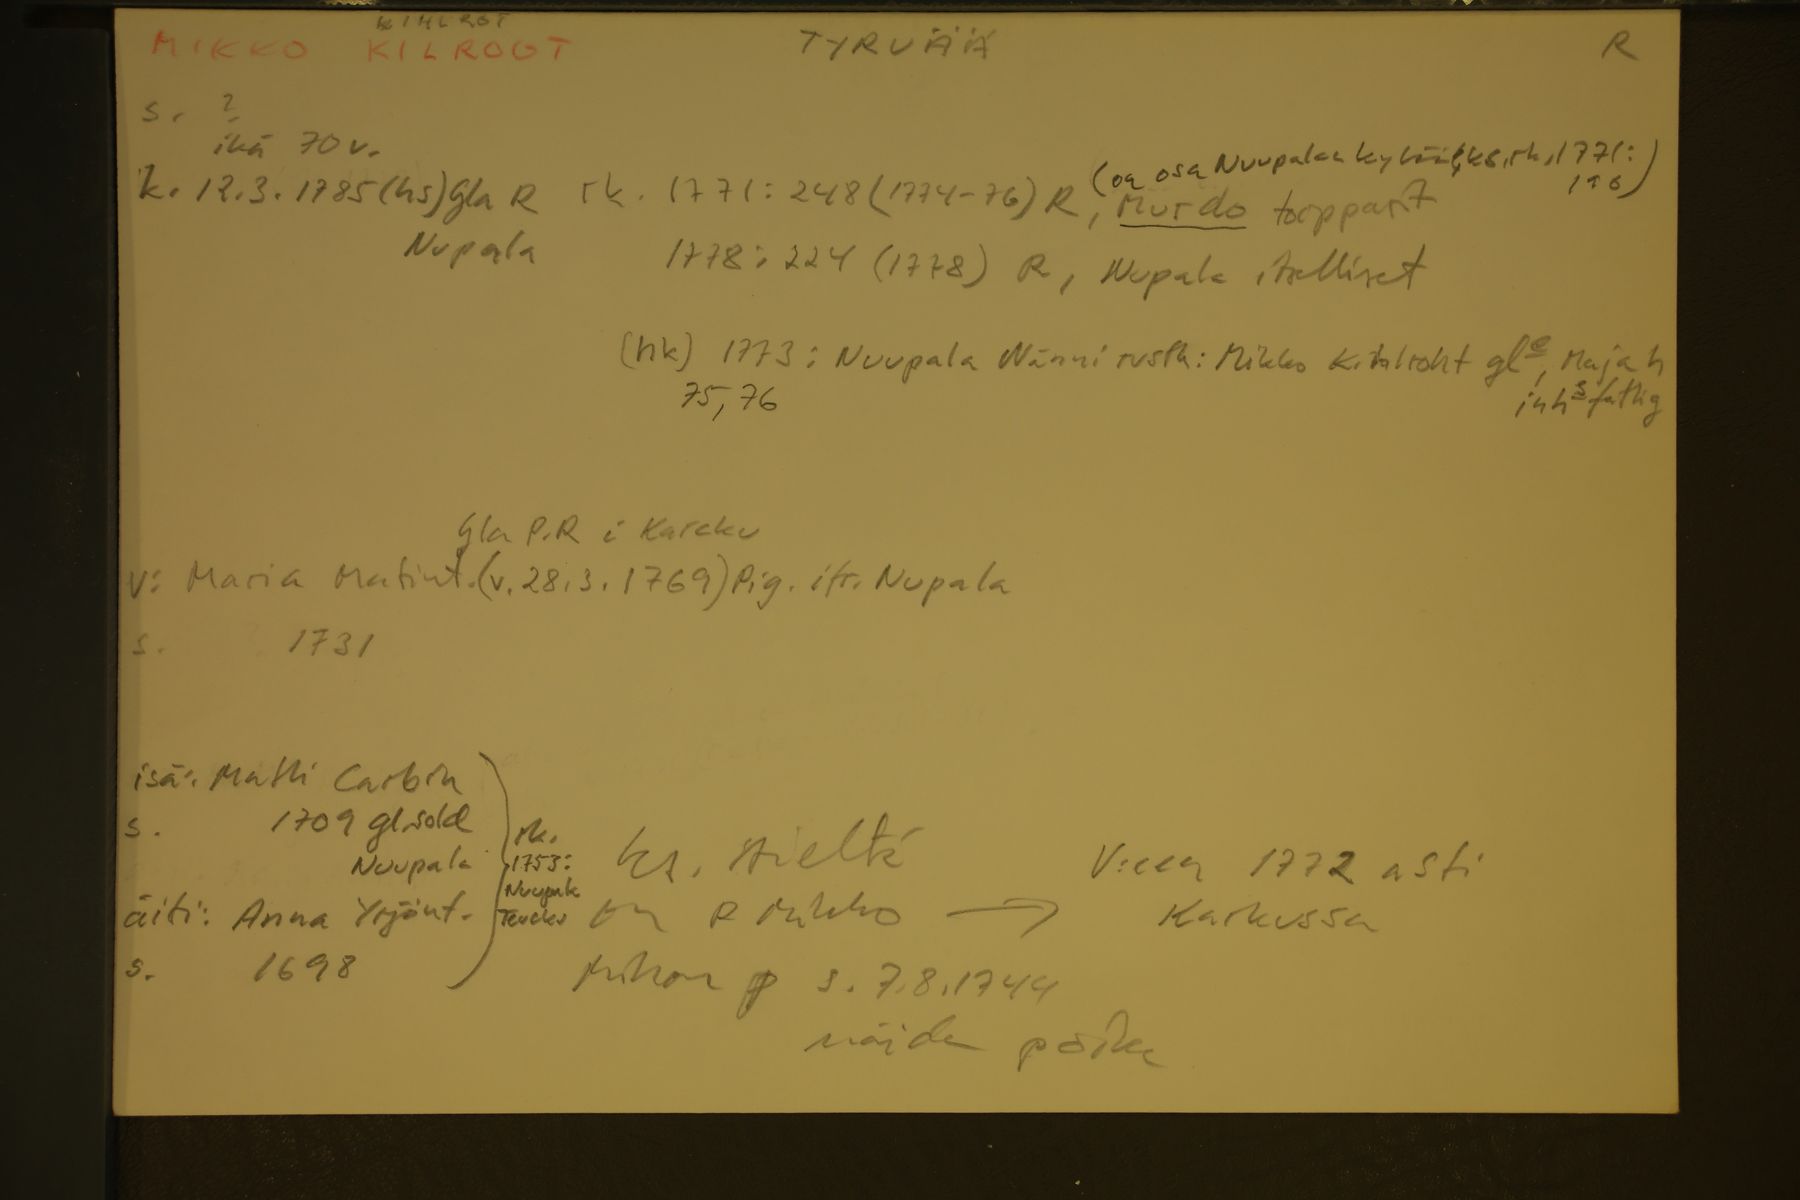 KIHLROT
MIKKO KILROOT TYRVÄÄ R
s. ?
ikä 70 v.
(on osa Nuupalan kylää, ks. rk. 1771:
196)
k. 12.3.1785 (hs) Gla R rk. 1771: 248 (1774-76) R, Murdo torpparit
Nupala 1778: 224 (1778) R, Nupala itselliset
(hk) 1773: Nuupala Nänni rusth: Mikko Kihlroht gl<u>e</u>, Maja h
75, 76 inh<u>s</u> fattig
Gla P.R i Karcku
v: Maria Matint. (v. 28.3.1769) Pig. ifr. Nupala
s. 1731
isä: Matti Carbin
s. 1709 gl. sold
Nuupala
äiti: Anna Yrjönt.
s. 1698
rk.
1753:
Nuupala
ks. sieltä
on R Mikko → V:een 1772 asti
Karkussa
Mikon p s. 7.8.1744
näiden poika